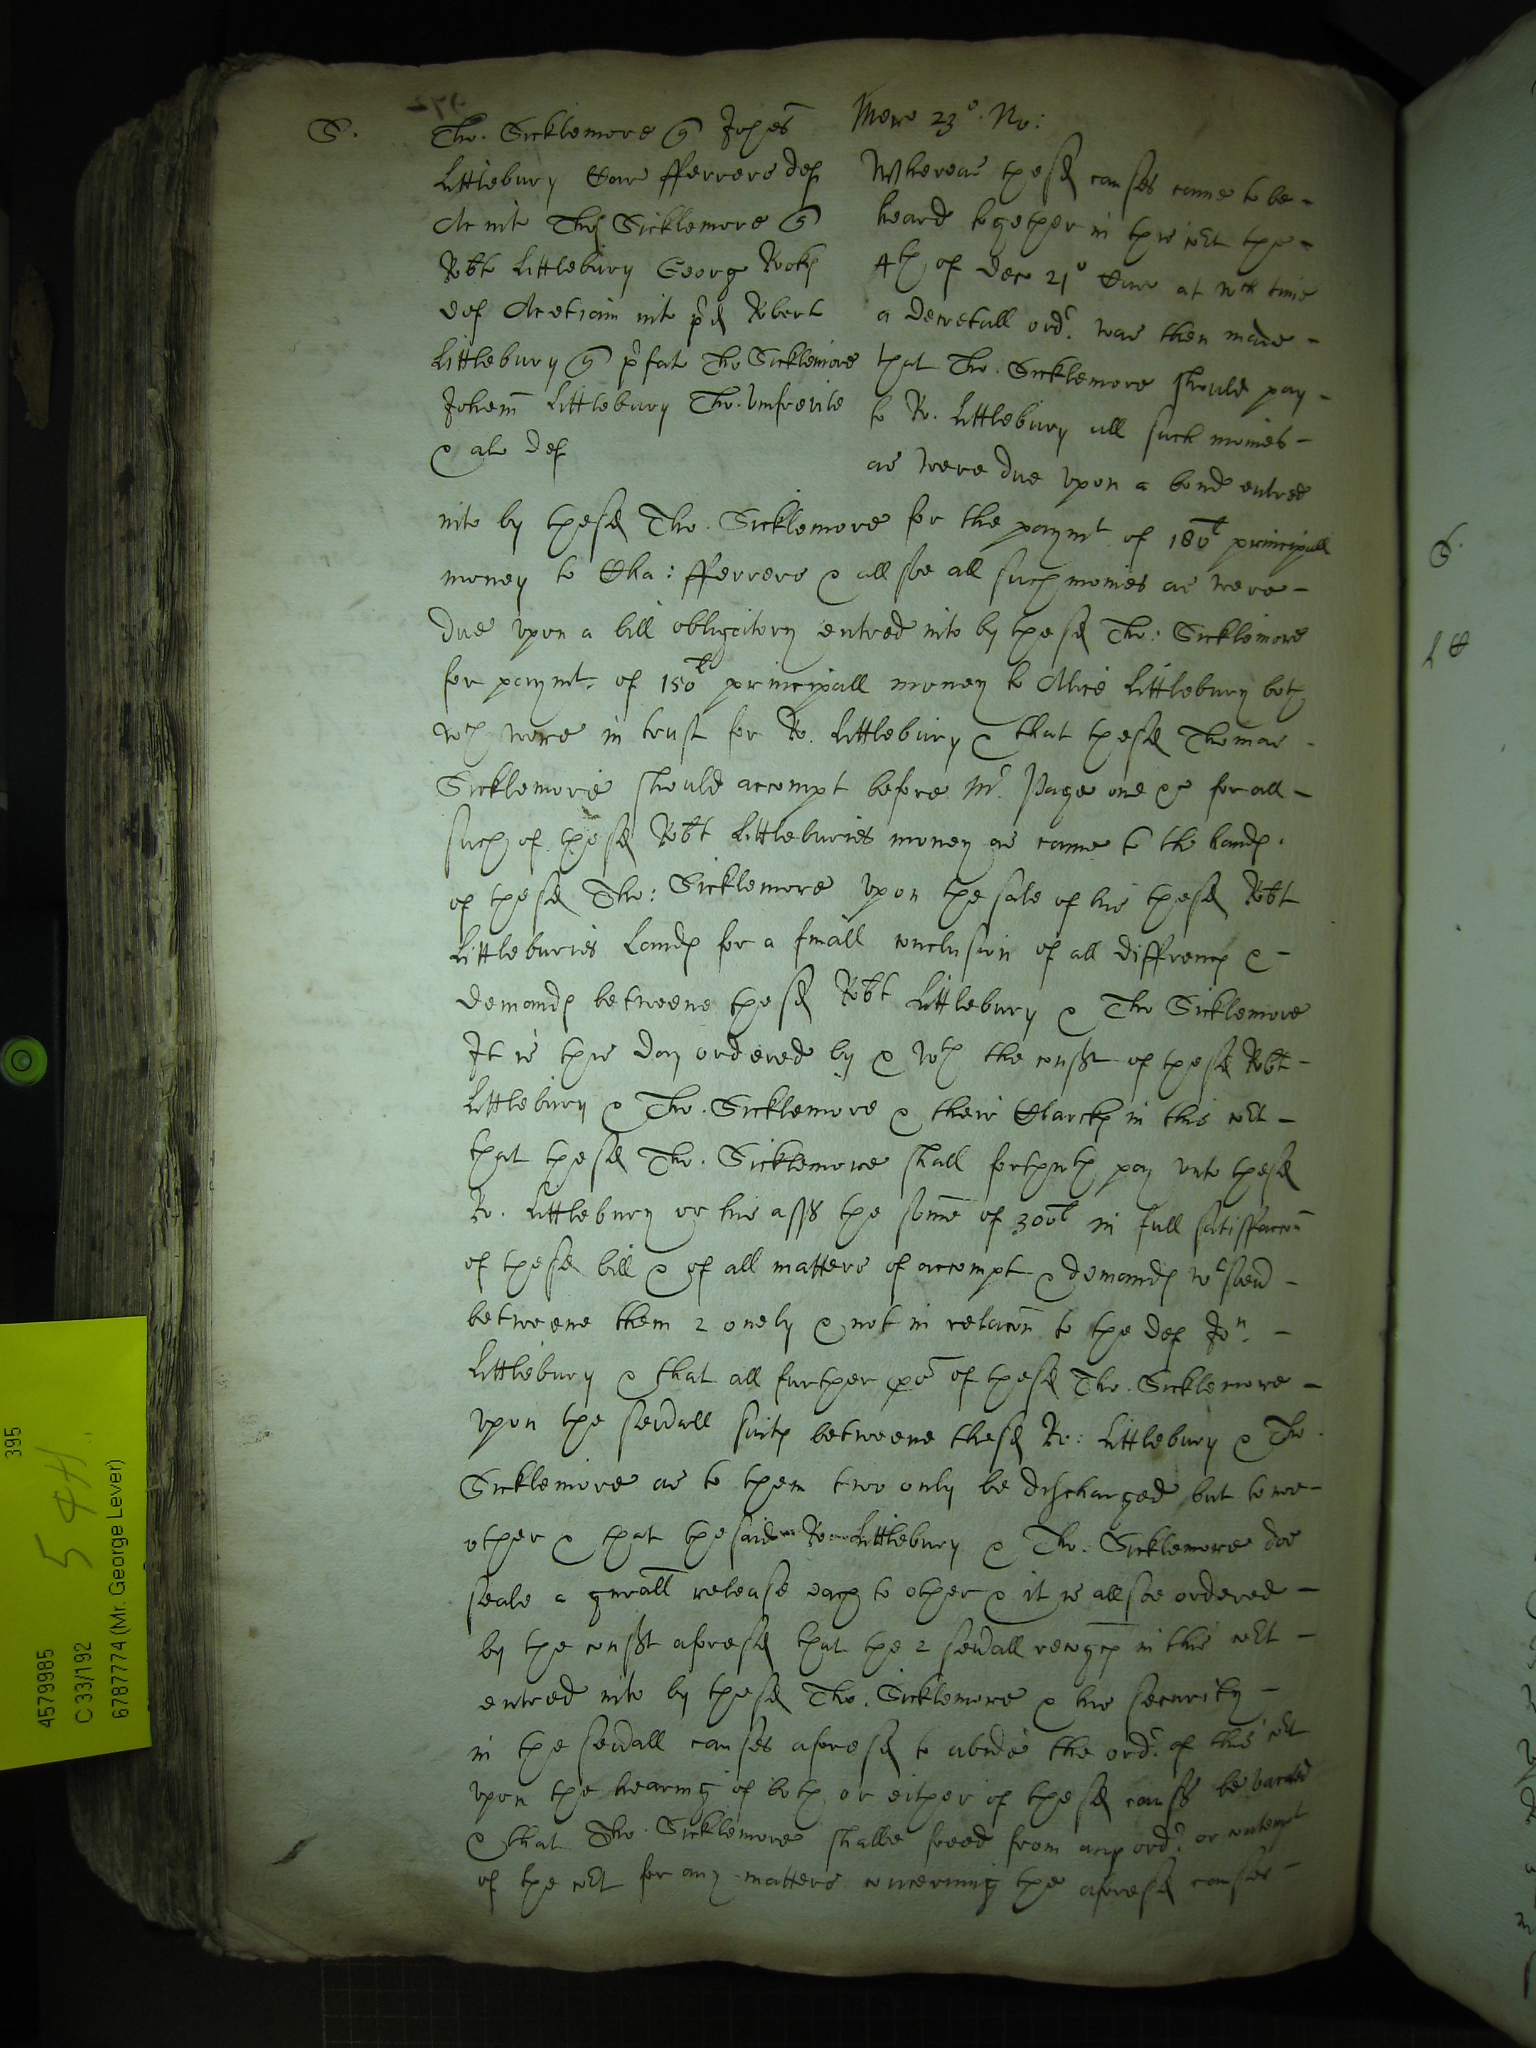 S.
Tho. Sicklemore q Johes
Littlebury Car fferrers def
Ac int Tho Sicklemore q
Robte Littlebury Georg Rook
def Ac etiam int p'd Robert
Littlebury q p'fat Tho Sicklemore
Johem Littlebury Tho. Umfrevile
& al def
Merc 23o No:
Whereas thesd causes came to be -
heard together in this Cot the -
4th of Dec 21o Car at wch time
a decretall ordr. was then made -
that Tho. Sicklemore should pay -
to Ro. Littlebury all such monies -
as were due upon a bond entred
into by thesd Tho. Sicklemore for the paymt of 180l principall
money to Cha: fferrers & allsoe all such monies as were -
due upon a bill obligatory entred into by thesd Tho: Sicklemore
for paymt. of 150l principall money to Alice Littlebury both
wch were in trust for Ro. Littlebury & that thesd Thomas -
Sicklemore should accompt before Mr. Page one &c for all -
such of thesd Robt Littleburies money as came to the hands.
of thesd Tho: Sicklemore upon the sale of his thesd Robt
Littleburies Lands for a finall conclusion of all differences & -
demands betweene thesd Robt Littlebury & Tho Sicklemore
It is this day ordered by & wth the consst of thesd Robt -
Littlebury & Tho. Sicklemore & their Clarcks in this Cot -
that thesd Tho. Sicklemore shall forthwth pay unto thesd
Ro. Littlebury or his asss the some of 300l in full satisfaccon
of thesd bill & of all matters of accompt & demands wtsoevr -
betweene them 2 onely & not in relacon to the def Jon. -
Littlebury & that all further p'c of thesd Tho. Sicklemore -
upon the sevrall suits betweene thesd Ro: Littlebury & Tho.
Sicklemore as to them two only be discharged but to noe -
other & that the said Ro Littlebury & Tho. Sicklemore doe
seale a gnrall release each to other & it is allsoe ordered -
by the consst aforesd that the 2 sevrall recogces in this Cot -
entred into by thesd Tho. Sicklemore & his security -
in the sevrall causes aforesd to abide the ordr. of this Cot
upon the hearing of both or either of thesd causs be vacated
& that Tho. Sicklemore shalbe freed from any ordr. or contempt
of the Cot for any matters concerning the aforesd causes -
S.
395
5 4H.
4579985
C 33/192
6787774 (Mr. George Lever)